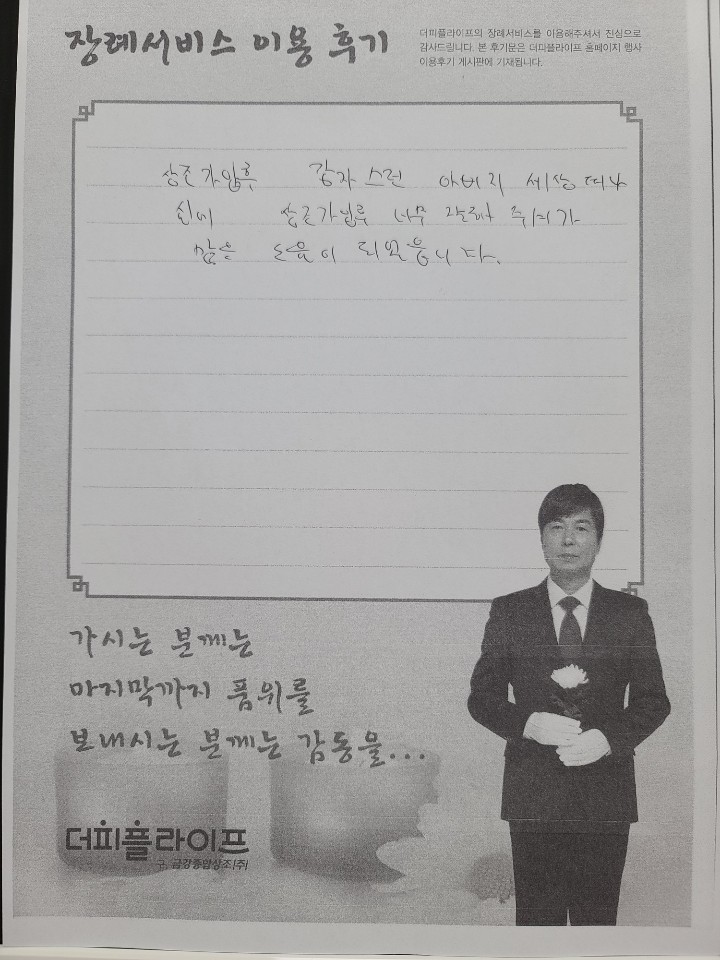 장례서비스 이용 후기
더피플라이프의 장례서비스를 이용해주셔서 진심으로
감사드립니다. 본 후기문은 더피플라이프 홈페이지 행사
이용후기 게시판에 기재됩니다.
상조가입후 갑자스런 아버리 세상떠나
상조가입후 너무 잘해 주셔가
많은 도움이 되었읍니다.
가시는 분께는
마지막까지 품위를
보내시는 분께는 감동을...
더피플라이프
구. 금강종합상조(주)